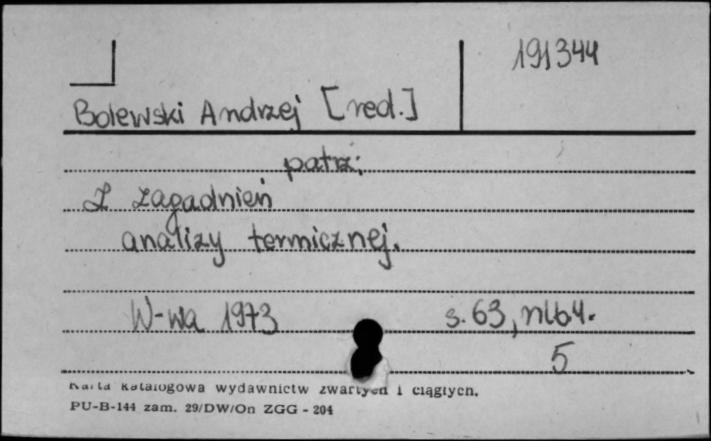 191344
Bolewski Andrzej [red.]
patrz:
Z zagadnień
analizy termicznej.
W-wa 1973 s. 63, nlb 4.
5
Karta katalogowa wydawnictw zwartych i ciągłych.
PU-B-144 zam. 29/DW/On ZGG - 204